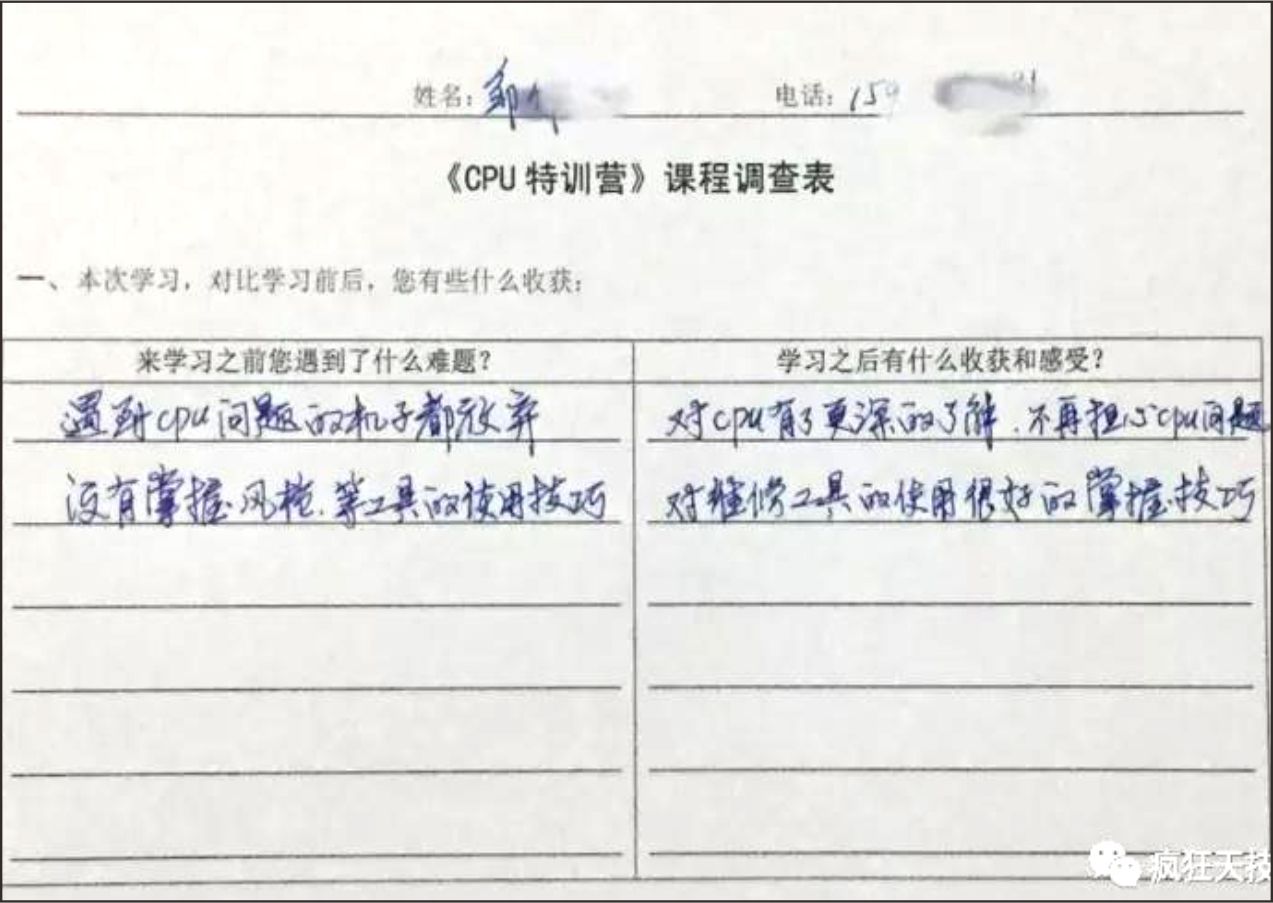 姓名：郭
电话：159
《CPU特训营》课程调查表
一、本次学习，对比学习前后，您有些什么收获：
来学习之前您遇到了什么难题？
遇到cpu问题的机子都放弃
没有掌握风枪.等工具的使用技巧
学习之后有什么收获和感受？
对cpu有了更深的了解.不再担心cpu问题
对维修工具的使用很好的掌握技巧
疯狂天技